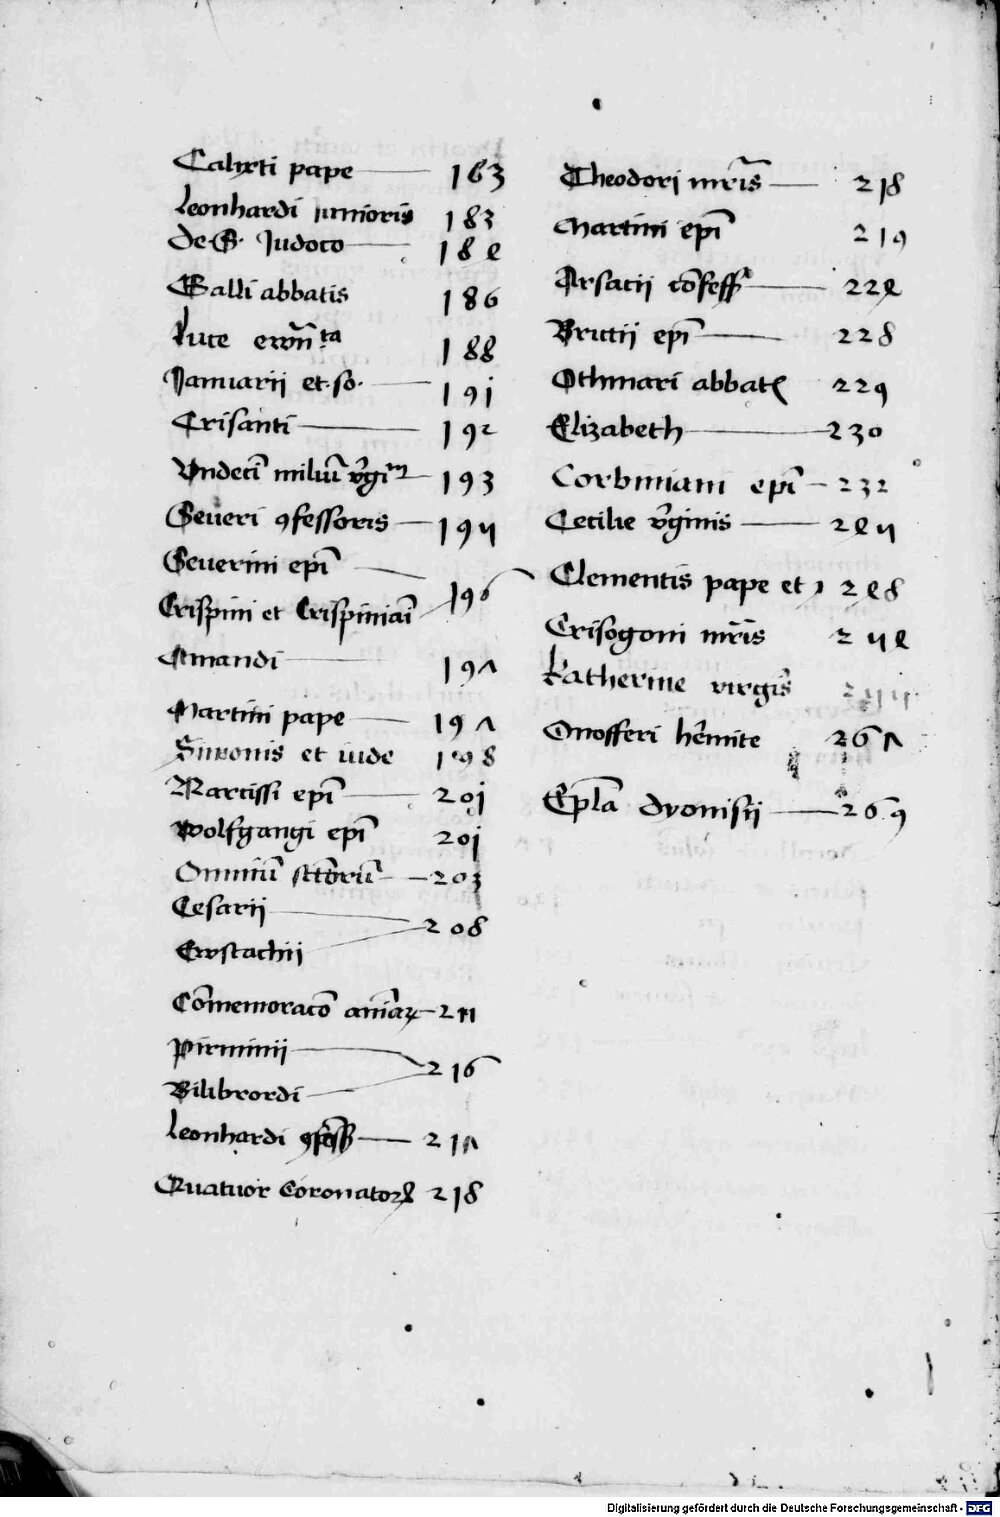 Calixti pape 163
Leonhardi iunioris 183
de S. Iudoco 184
Galli abbatis 186
Luce ewāīsta 188
Ianuarii et so. 191
Crisanti 192
Vndeci miliū v̄gīm 193
Seueri 9fessoris 195
Seuerini epī
Crispini et Crispiniāi 196
Amandi 197
Martini pape 197
Simonis et iude 198
Narcissi epī 201
Wolfgangi epī 201
Omniū sctōrū 203
Cesarii
Ewstachii 208
Cōmemoracō aīaꝝ 211
Pirminii
Bilibrordi 216
Leonhardi 9fess 217
Quatuor Coronatorꝝ 218
Theodori mr̄is 218
Martini epī 219
Arsacii cōfess 224
Brictii epī 228
Othmari abbatꝭ 229
Elizabeth 230
Corbiniani epī 232
Cecilie v̄ginis 245
Clementis pape et 248
Crisogoni mr̄is 254
Katherine virgīs
Onofferi hēmite 267
Epl̄a dyonisii 269
Digitalisierung gefördert durch die Deutsche Forschungsgemeinschaft - DFG